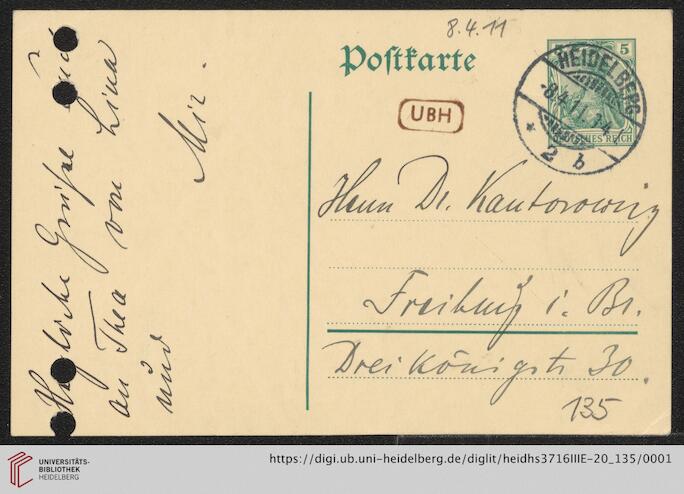 8.4.11
Postkarte
5
HEIDELBERG
-8.4.11.
* 2 b
REICH
UBH
Herrn Dr. Kantorowicz
Freiburg i. Br.
Dreikönigstr 30.
135
Herzliche Grüße
an Thea von Lina
und
UNIVERSITÄTS-
BIBLIOTHEK
HEIDELBERG
https://digi.ub.uni-heidelberg.de/diglit/heidhs3716IIIE-20_135/0001